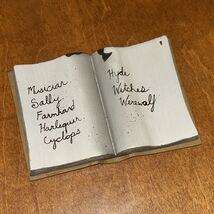 Musician
Sally
Farmhand
Harlequin
Cyclops
Hyde
Witches
Werewolf